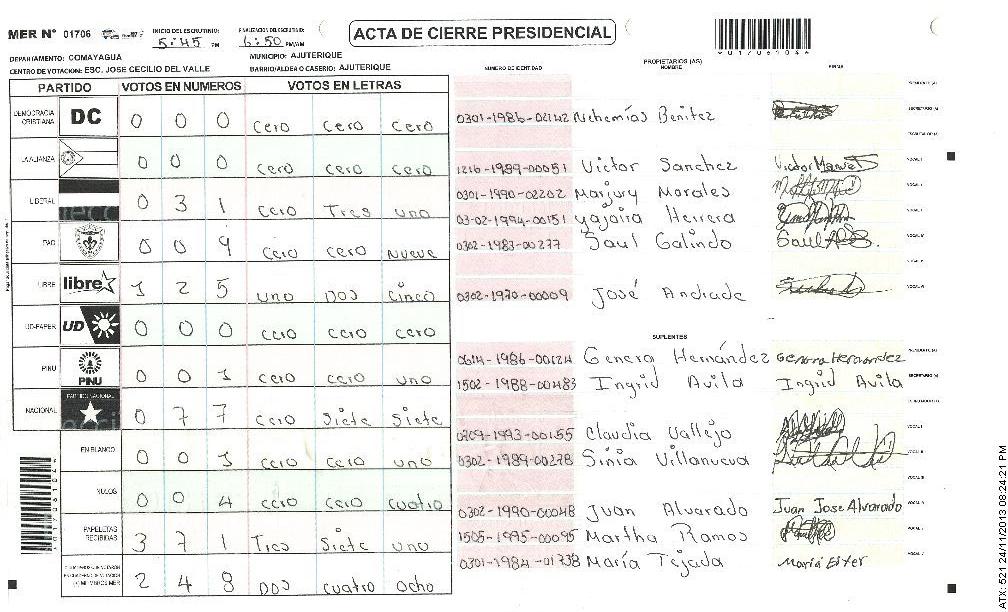 MER N° 01706 INICIO DEL ESCRUTINIO: 5:45 PM FINALIZACION DEL ESCRUTINIO: 6:50 PM/AM
ACTA DE CIERRE PRESIDENCIAL
DEPARTAMENTO: COMAYAGUA MUNICIPIO: AJUTERIQUE
CENTRO DE VOTACION: ESC. JOSE CECILIO DEL VALLE BARRIO/ALDEA O CASERIO: AJUTERIQUE
PARTIDO VOTOS EN NUMEROS VOTOS EN LETRAS
DEMOCRACIA CRISTIANA DC 0 0 0 Cero Cero Cero
LA ALIANZA 0 0 0 Cero Cero Cero
LIBERAL 0 3 1 Cero Tres uno
PAC 0 0 9 Cero Cero Nueve
LIBRE libre 1 2 5 uno Dos Cinco
UD-FAPER UD 0 0 0 Cero Cero Cero
PINU PINU 0 0 1 Cero Cero uno
NACIONAL PARTIDO NACIONAL 0 7 7 Cero Siete Siete
EN BLANCO 0 0 1 Cero Cero uno
NULOS 0 0 4 Cero Cero cuatro
PAPELETAS RECIBIDAS 3 7 1 Tres Siete uno
2 4 8 Dos cuatro ocho
NUMERO DE IDENTIDAD PROPIETARIOS (AS) NOMBRE FIRMA
0301-1986-02142 Nehemías Benitez
1216-1989-00051 Victor Sanchez Victor Manuel
0301-1990-02202 Marjury Morales
03-02-1994-00151 Yajaira Herrera
0302-1983-00277 Saul Galindo Saul
0302-1970-00009 José Andrade
SUPLENTES
0614-1986-00124 Genera Hernández Genera Hernandez
1502-1988-00483 Ingrid Avila Ingrid Avila
0209-1993-00155 Claudia Vallejo
0302-1989-00278 Sinia Villanueva
0302-1990-00048 Juan Alvarado Juan Jose Alvarado
1505-1995-00095 Martha Ramos
0301-1984-01338 María Tejada María Ester
ATX: 521 24/11/2013 08:24:21 PM